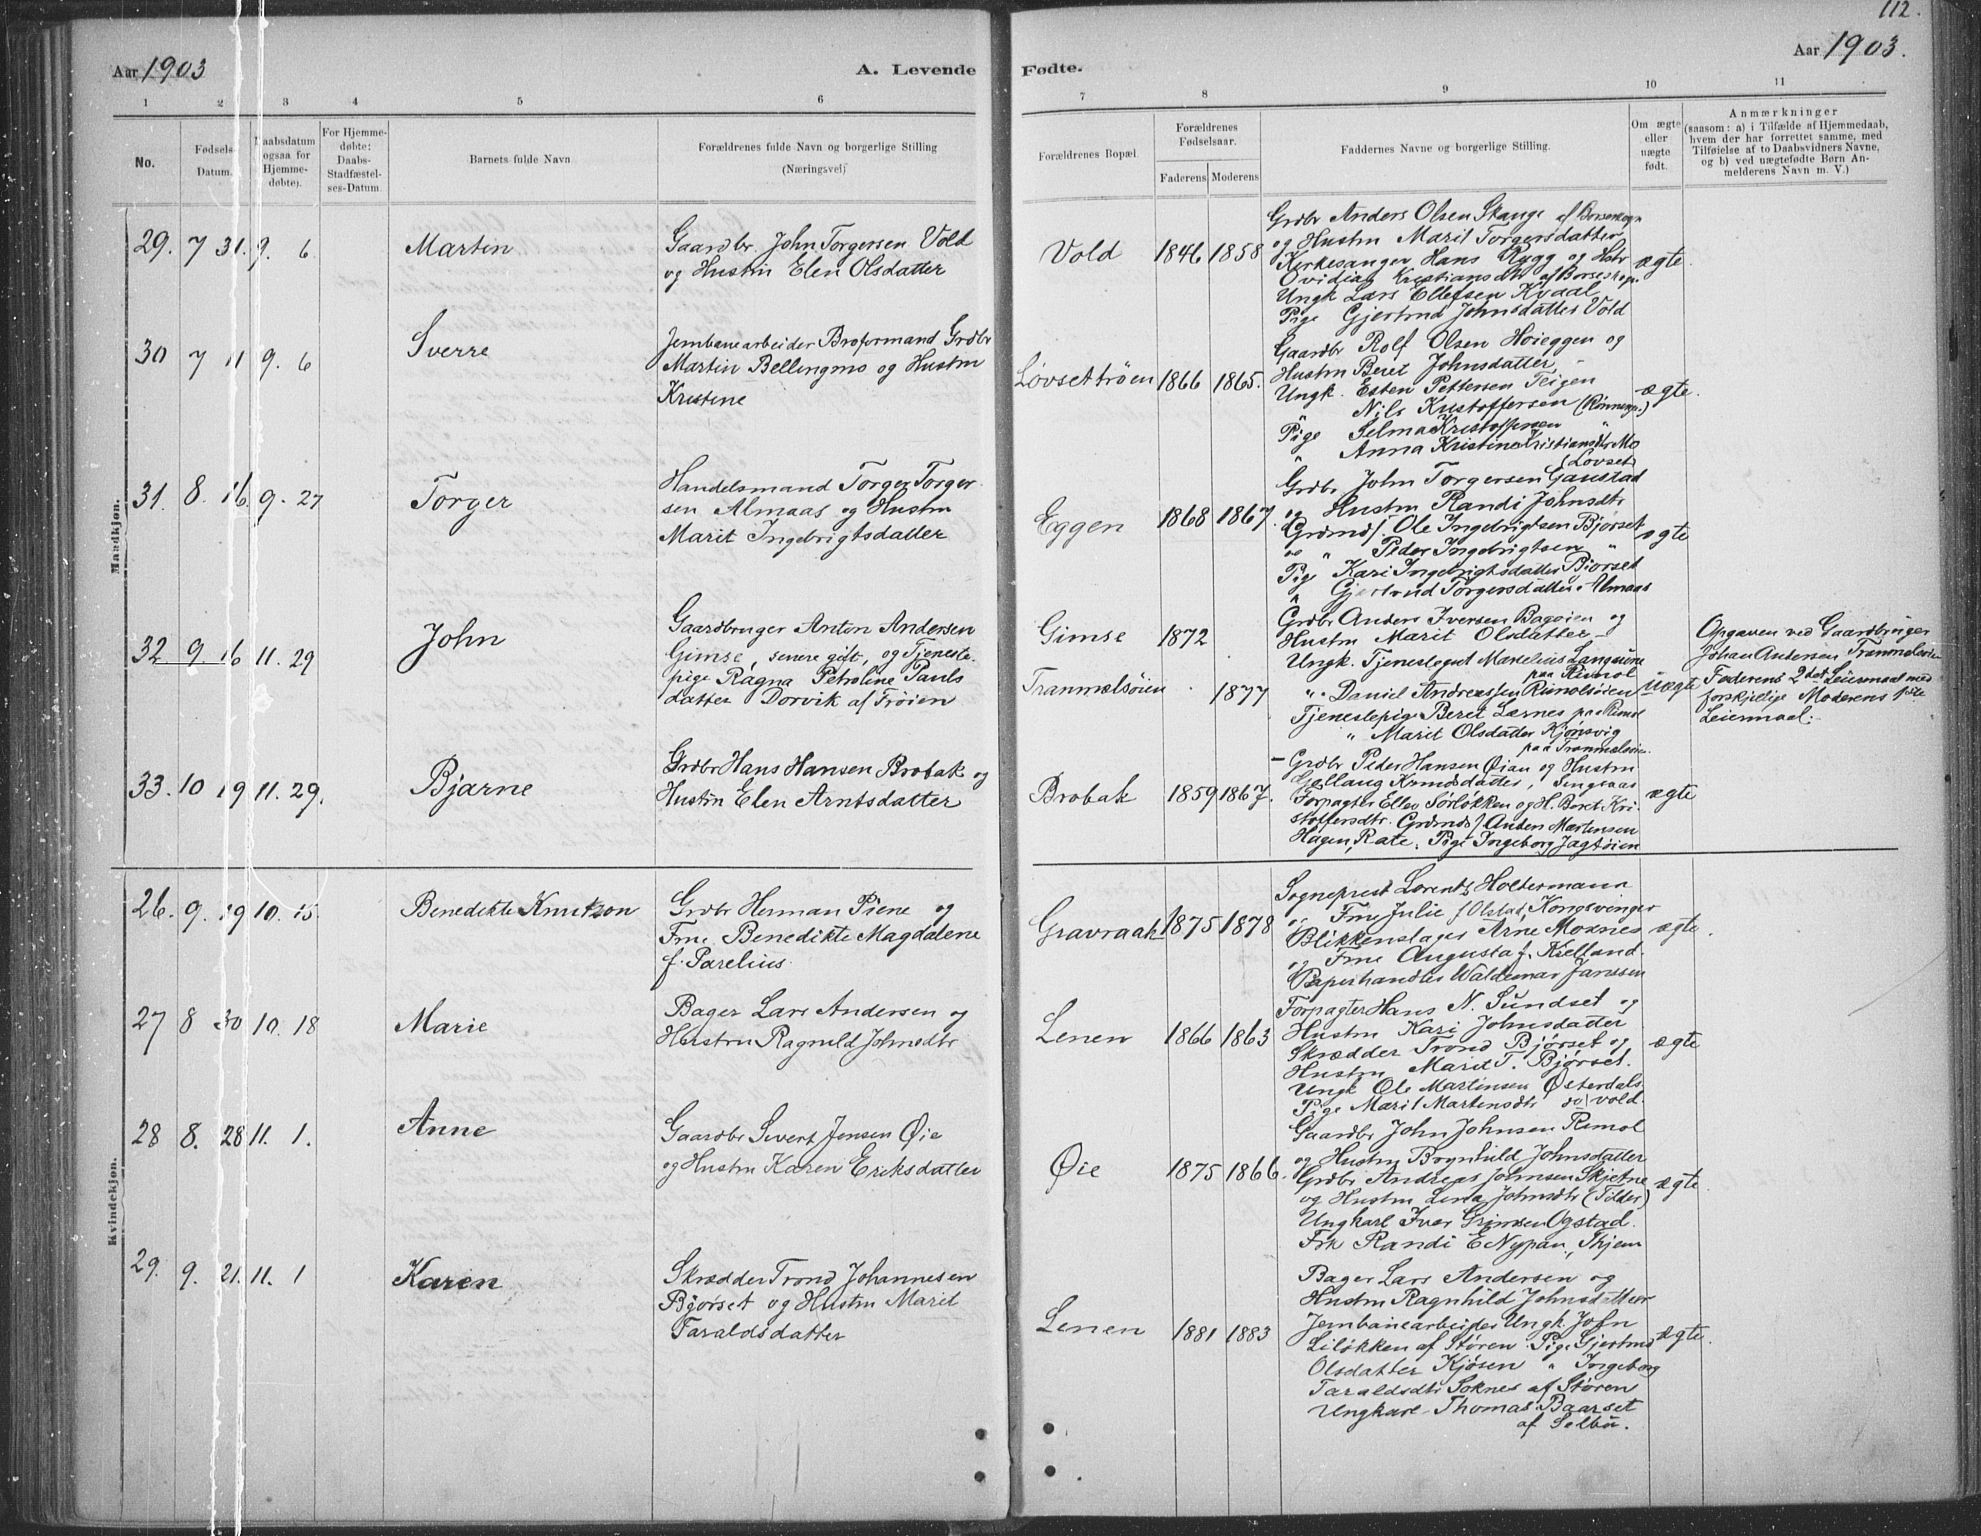 112.
Aar 1903
A. Levende Fødte.
Aar 1903.
1 2 3 4 5 6 7 8 9 10 11
No.
Fødsels-
Datum.
Daabsdatum
(ogsaa for
Hjemme-
døbte).
For Hjemme-
døbte:
Daabs-
Stadfæstel-
ses-Datum.
Barnets fulde Navn
Forældrenes fulde Navn og borgerlige Stilling
(Næringsvei)
Forældrenes Bopæl.
Forældrenes
Fødselsaar.
Faderens Moderens
Faddernes Navne og borgerlige Stilling.
Om ægte
eller
uægte
født.
Anmærkninger
(saasom: a) i Tilfælde af Hjemmedaab,
hvem der har forrettet samme, med
Tilføielse af to Daabsvidners Navne,
og b) ved uægtefødte Børn An-
melderens Navn m. V.)
Mandkjøn.
29. 7 31. 9. 6
Martin
Gaardbr. John Torgersen Vold
og Hustru Elen Olsdatter
Vold 1846 1858
Grdbr Anders Olsen Skauge af Borseskogn
og Hustru Marit Torgersdatter
Kirkesanger Hans Rygg og Hstr
Ovidia Kristiansdtr af Borseskogn.
Ungk Lars Ellefsen Kvaal
Pige Gjertrud Johnsdatter Vold
ægte
30 7 11 9. 6
Sverre
Jernbanearbeider Broformand Grdbr
Martin Bellingmo og Hustru
Kristine
Løvsettrøen 1866 1865.
Gaardbr Rolf Olsen Høieggen og
Hustru Beret Johnsdatter,
Ungk. Esten Pettersen Teigen
Nils Kristoffersen
Pige Selma Kristoffersen "
" Anna Kristine Kristiansdtr Mo
(Løvset)
ægte.
31. 8. 16 9. 27
Torger
Handelsmand Torger Torger-
sen Almaas og Hustru
Marit Ingebrigtsdatter
Eggen 1868 1867.
Grdbr John Torgersen Gaustad
og Hustru Randi Johnsdtr
Grdmds/. Ole Ingebrigtsen Bjørset
" Peder Ingebrigtsen "
Pige Kari Ingebrigtsdatter Bjørset
" Gjertrud Torgersdatter Almaas
ægte
32 9. 16 11. 29
John
Gaardbruger Anton Andersen
Gimse, senere gift, og Tjeneste-
pige Ragna Petroline Pauls
datter Dorvik af Frøien
Gimse 1872
Tranmælsøien 1877
Grdbr Anders Iversen Bagøien og
Hustru Marit Olsdatter
Ungk. Tjenestegut Marelius Langsine
paa Rimol
" Daniel Andreassen Rimolsøien
Tjenestepige Beret Lernes paa Rimol
" Marit Olsdatter Kjønsvig
paa Tranmælsøien.
uægte
Opgaven ved Gaardbruger
Johan Andersen Tranmelsøien
Faderens 2det Leiermaal med
forskjellige Moderens 1ste
Leiermaal.
33. 10 19 11. 29.
Bjarne
Grdbr Hans Hansen Brobak og
Hustru Elen Arntsdatter
Brobak 1859 1867.
Grdbr Peder Hansen Øian og Hustru
Gollaug Knudsdatter, Singsaas
Forpagter Ellev Sørløkken og H. Beret Kri-
stoffersdtr. Grdmds/ Anders Martensen
Hagen, Rate. Pige Ingeborg Jagtøien
ægte
Kvindekjøn.
26. 9. 19 10. 15
Benedikte Knutzon
Grdbr Herman Piene og
Frue Benedikte Magdalene
f. Parelius.
Gravraak 1875 1878
Sogneprest Lorentz Holtermann
og Frue Julie f Olstad, Kongsvinger
Blikkenslager Arne Moxnes
og Frue Augusta f. Kielland.
Papirhandler Waldemar Janssen
ægte.
27 8 30 10. 18
Marie
Bager Lars Andersen og
Hustru Ragnild Johnsdtr
Lenen 1866 1863
Forpagter Hans N. Sundset og
Hustru Kari Johnsdatter
Skrædder Trond Bjørset og
Hustru Marit T. Bjørset.
Ungk Ole Martinsen Østerdals
Pige Marit Martensdtr do/vold.
ægte
28 8. 28 11. 1.
Anne
Gaardbr Sivert Jensen Øie
og Hustru Karen Eriksdatter
Øie 1875 1866.
Gaardbr John Johnsen Rimol
og Hustru Brynhild Johnsdatter
Grdbr Andreas Johnsen Skjetne
og Hustru Lena Johnsdtr (Tilder)
Ungkarl Iver Grimsen Ogstad.
Frk Randi E Nypan, Thjem
ægte.
29. 9. 21. 11. 1
Karen
Skrædder Trond Johannesen
Bjørset og Hustru Marit
Taraldsdatter
Lenen 1881 1883
Bager Lars Andersen og
Hustru Ragnhild Johnsdatter
Jernbanearbeider Ungk. John
Liløkken af Støren. Pige Gjertrud
Olsdatter Kjøsen " Ingeborg
Taraldsdtr Soknes af Støren
Ungkarl Thomas Baarset
af Selbu.
ægte.